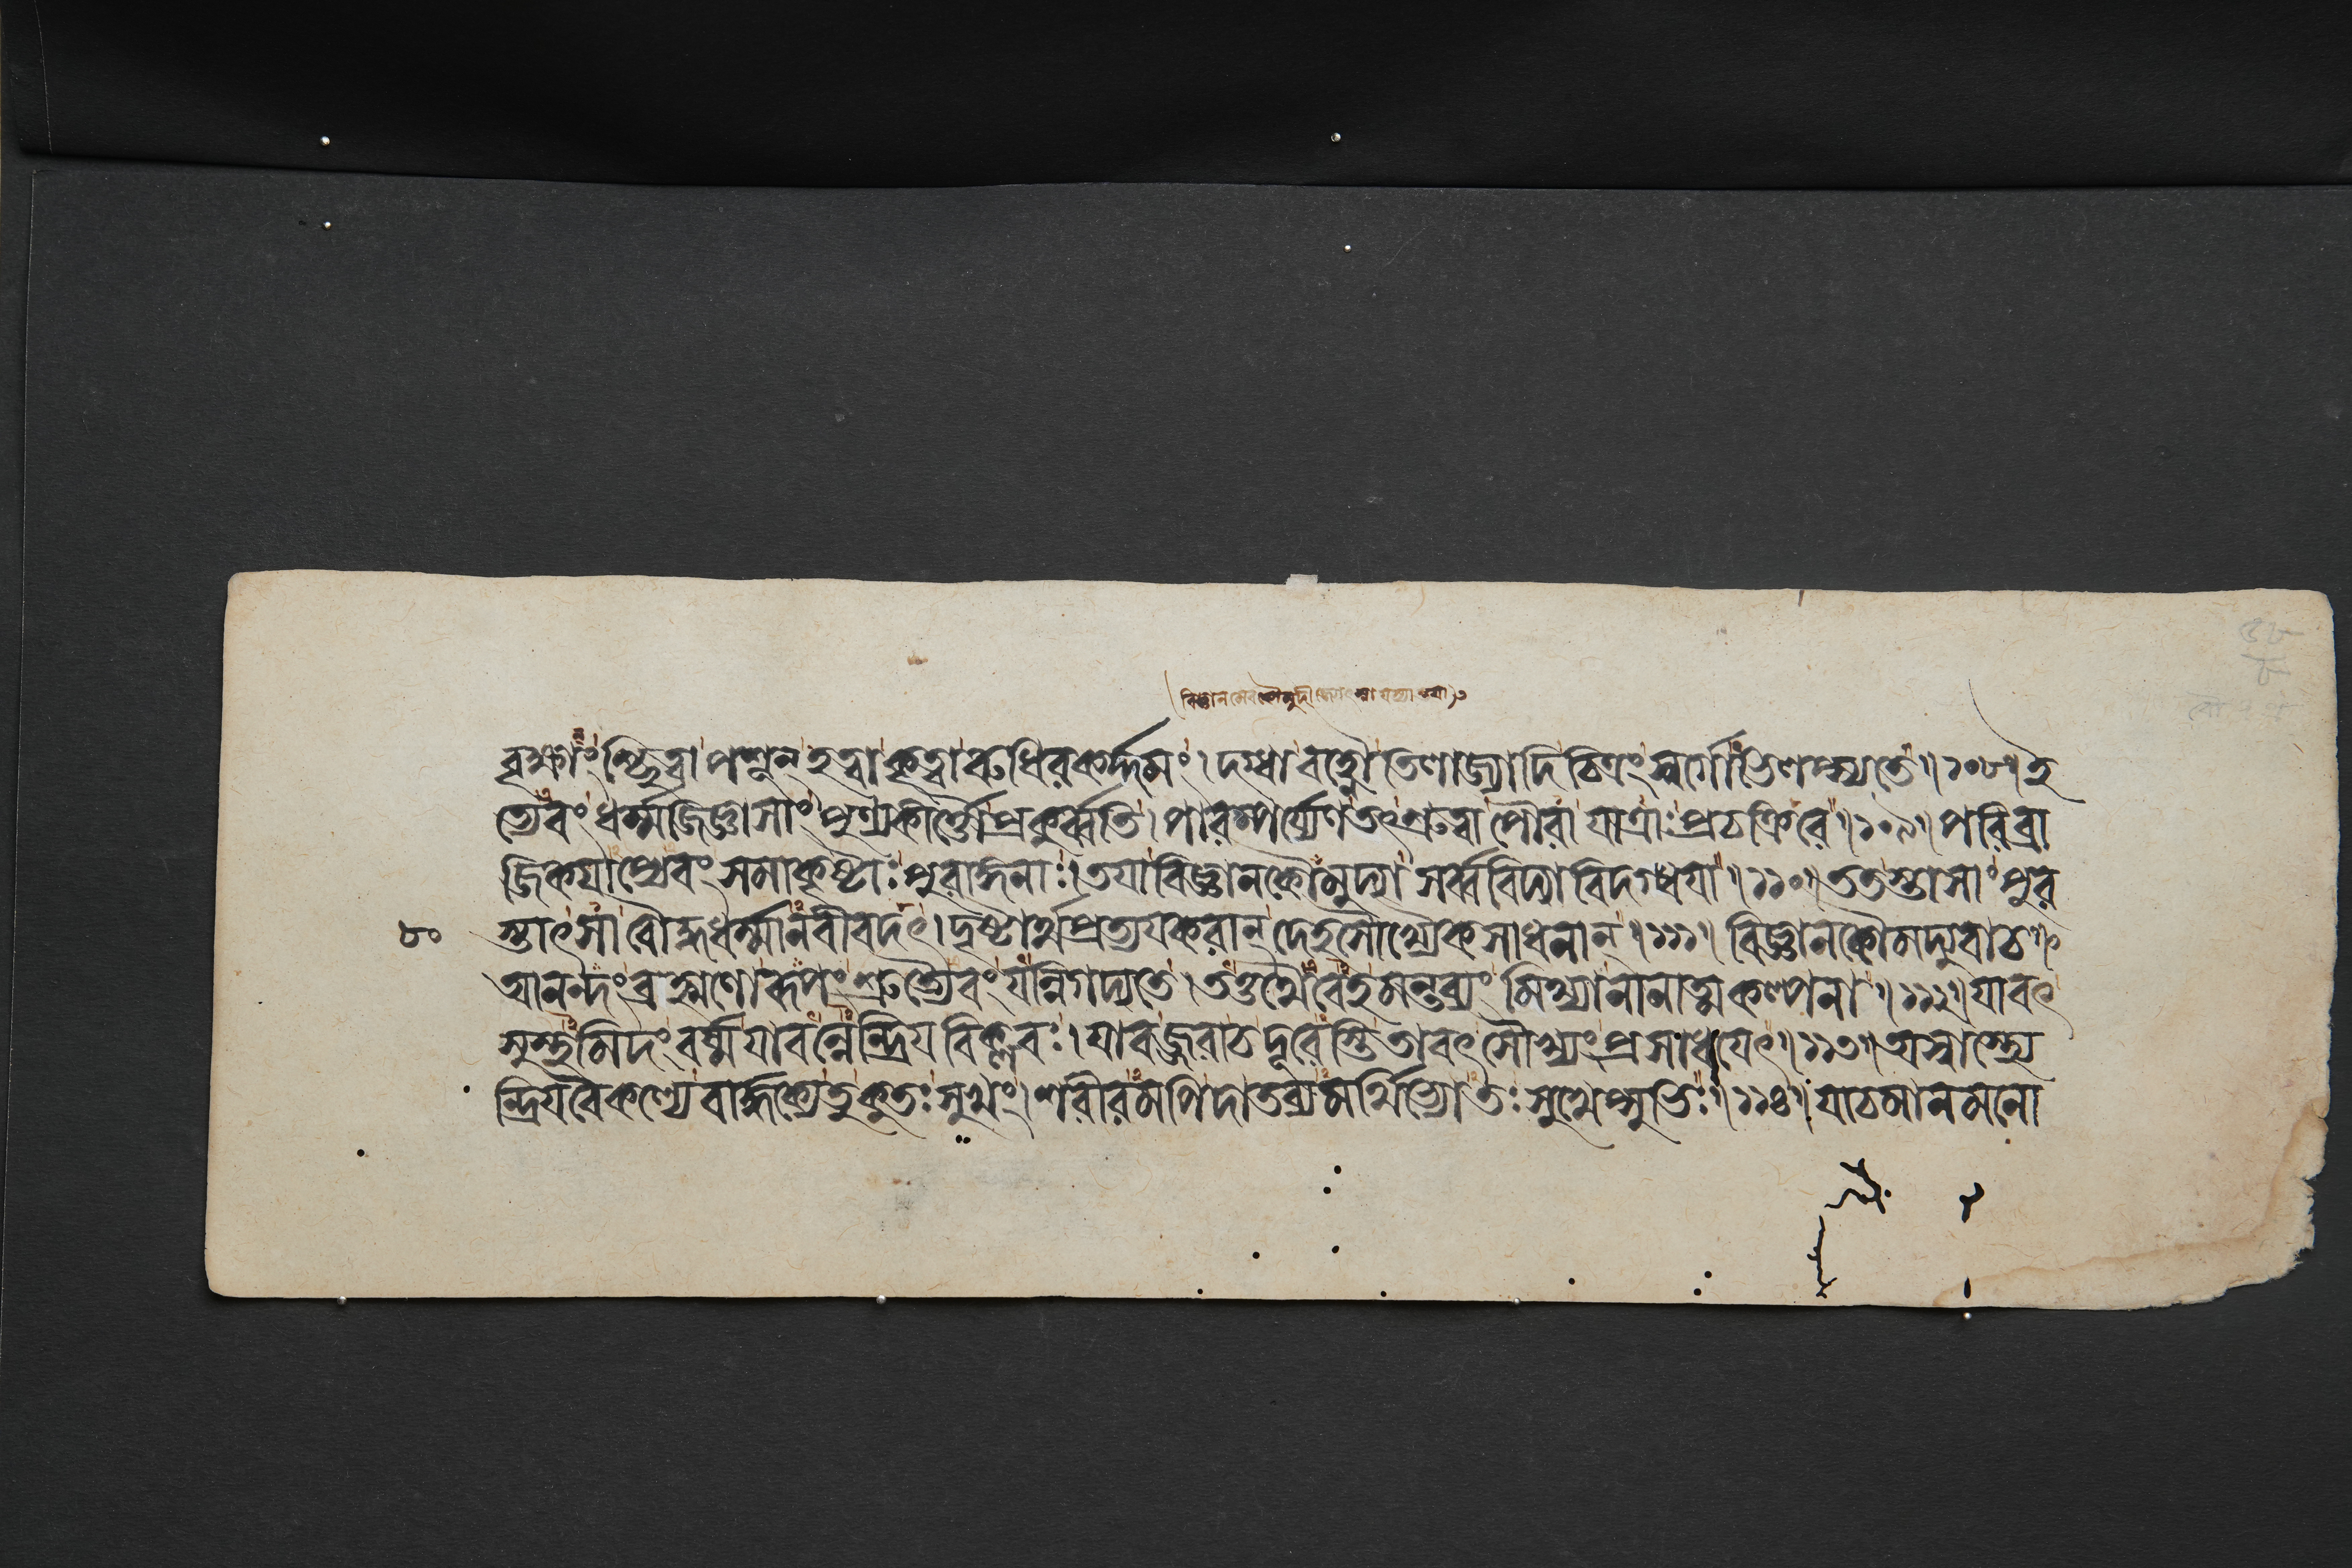 বিজ্ঞানমেব কৌমুদী জ্যোৎস্না যস্যাস্তয়া
বৃক্ষাংশ্ছিত্বা পশূন্ হত্বা কৃত্বা রুধিরকর্দ্দমং। দগ্ধ্বা বহ্নৌ তিলাজ্যাদি চিত্রং স্বর্গোভিলষ্যতে॥১০৮॥ই
ত্যেবং ধর্ম্মজিজ্ঞাসাং পুণ্যকীর্ত্তৌ প্রকুর্ব্বতি। পারম্পর্য্যেণ তৎশ্রুত্বা পৌরা যাত্রাং প্রচক্রিরে॥১০৯॥ পরিব্রা
জিকয়াপ্যেবং সমাকৃষ্টাঃ পুরাঙ্গনাঃ। তয়া বিজ্ঞানকৌমুদ্যা সর্ব্ববিদ্যাবিদগ্ধয়া॥১১০॥ ততস্তাসাং পুর
৮০ স্তাৎ সা বৌদ্ধধর্ম্মানবীবদৎ। দৃষ্টার্থপ্রত্যয়করান্ দেহসৌখ্যৈকসাধনান্॥১১১॥ বিজ্ঞানকৌমুদ্যুবাচ॥
আনন্দং ব্রহ্মণো রূপং শ্রুত্যৈবং যন্নিগদ্যতে। তত্তথৈবেহ মন্তব্যং মিথ্যা নানাত্বকল্পনা॥১১২॥ যাবৎ
সুস্থমিদং বর্ষ্ম যাবন্নেন্দ্রিয়বিক্লবঃ। যাবজ্জরা চ দূরেস্তি তাবৎ সৌখ্যং প্রসাধয়েৎ॥১১৩॥ অস্বাস্থ্যে
ন্দ্রিয়বৈকল্যে বার্দ্ধক্যে তু কুতঃ সুখং। শরীরমপি দাতব্যমর্থিভ্যোতঃ সুখেপ্সুভিঃ॥১১৪॥ যাচমানমনো